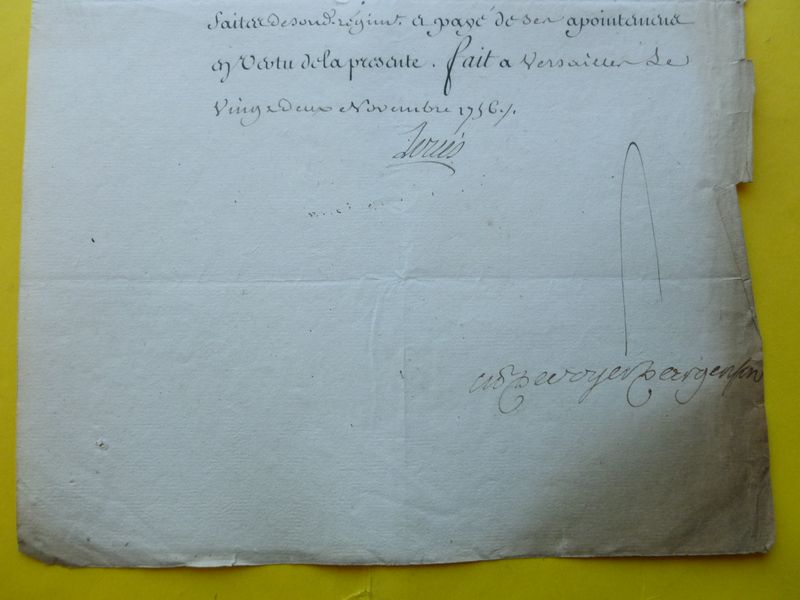 faites de sond. régimt. et payé de ses apointemens
en vertu de la presente. fait a Versailles le
vingt deux Novembre 1756 ./.
Louis
M de Voyer D'argenson